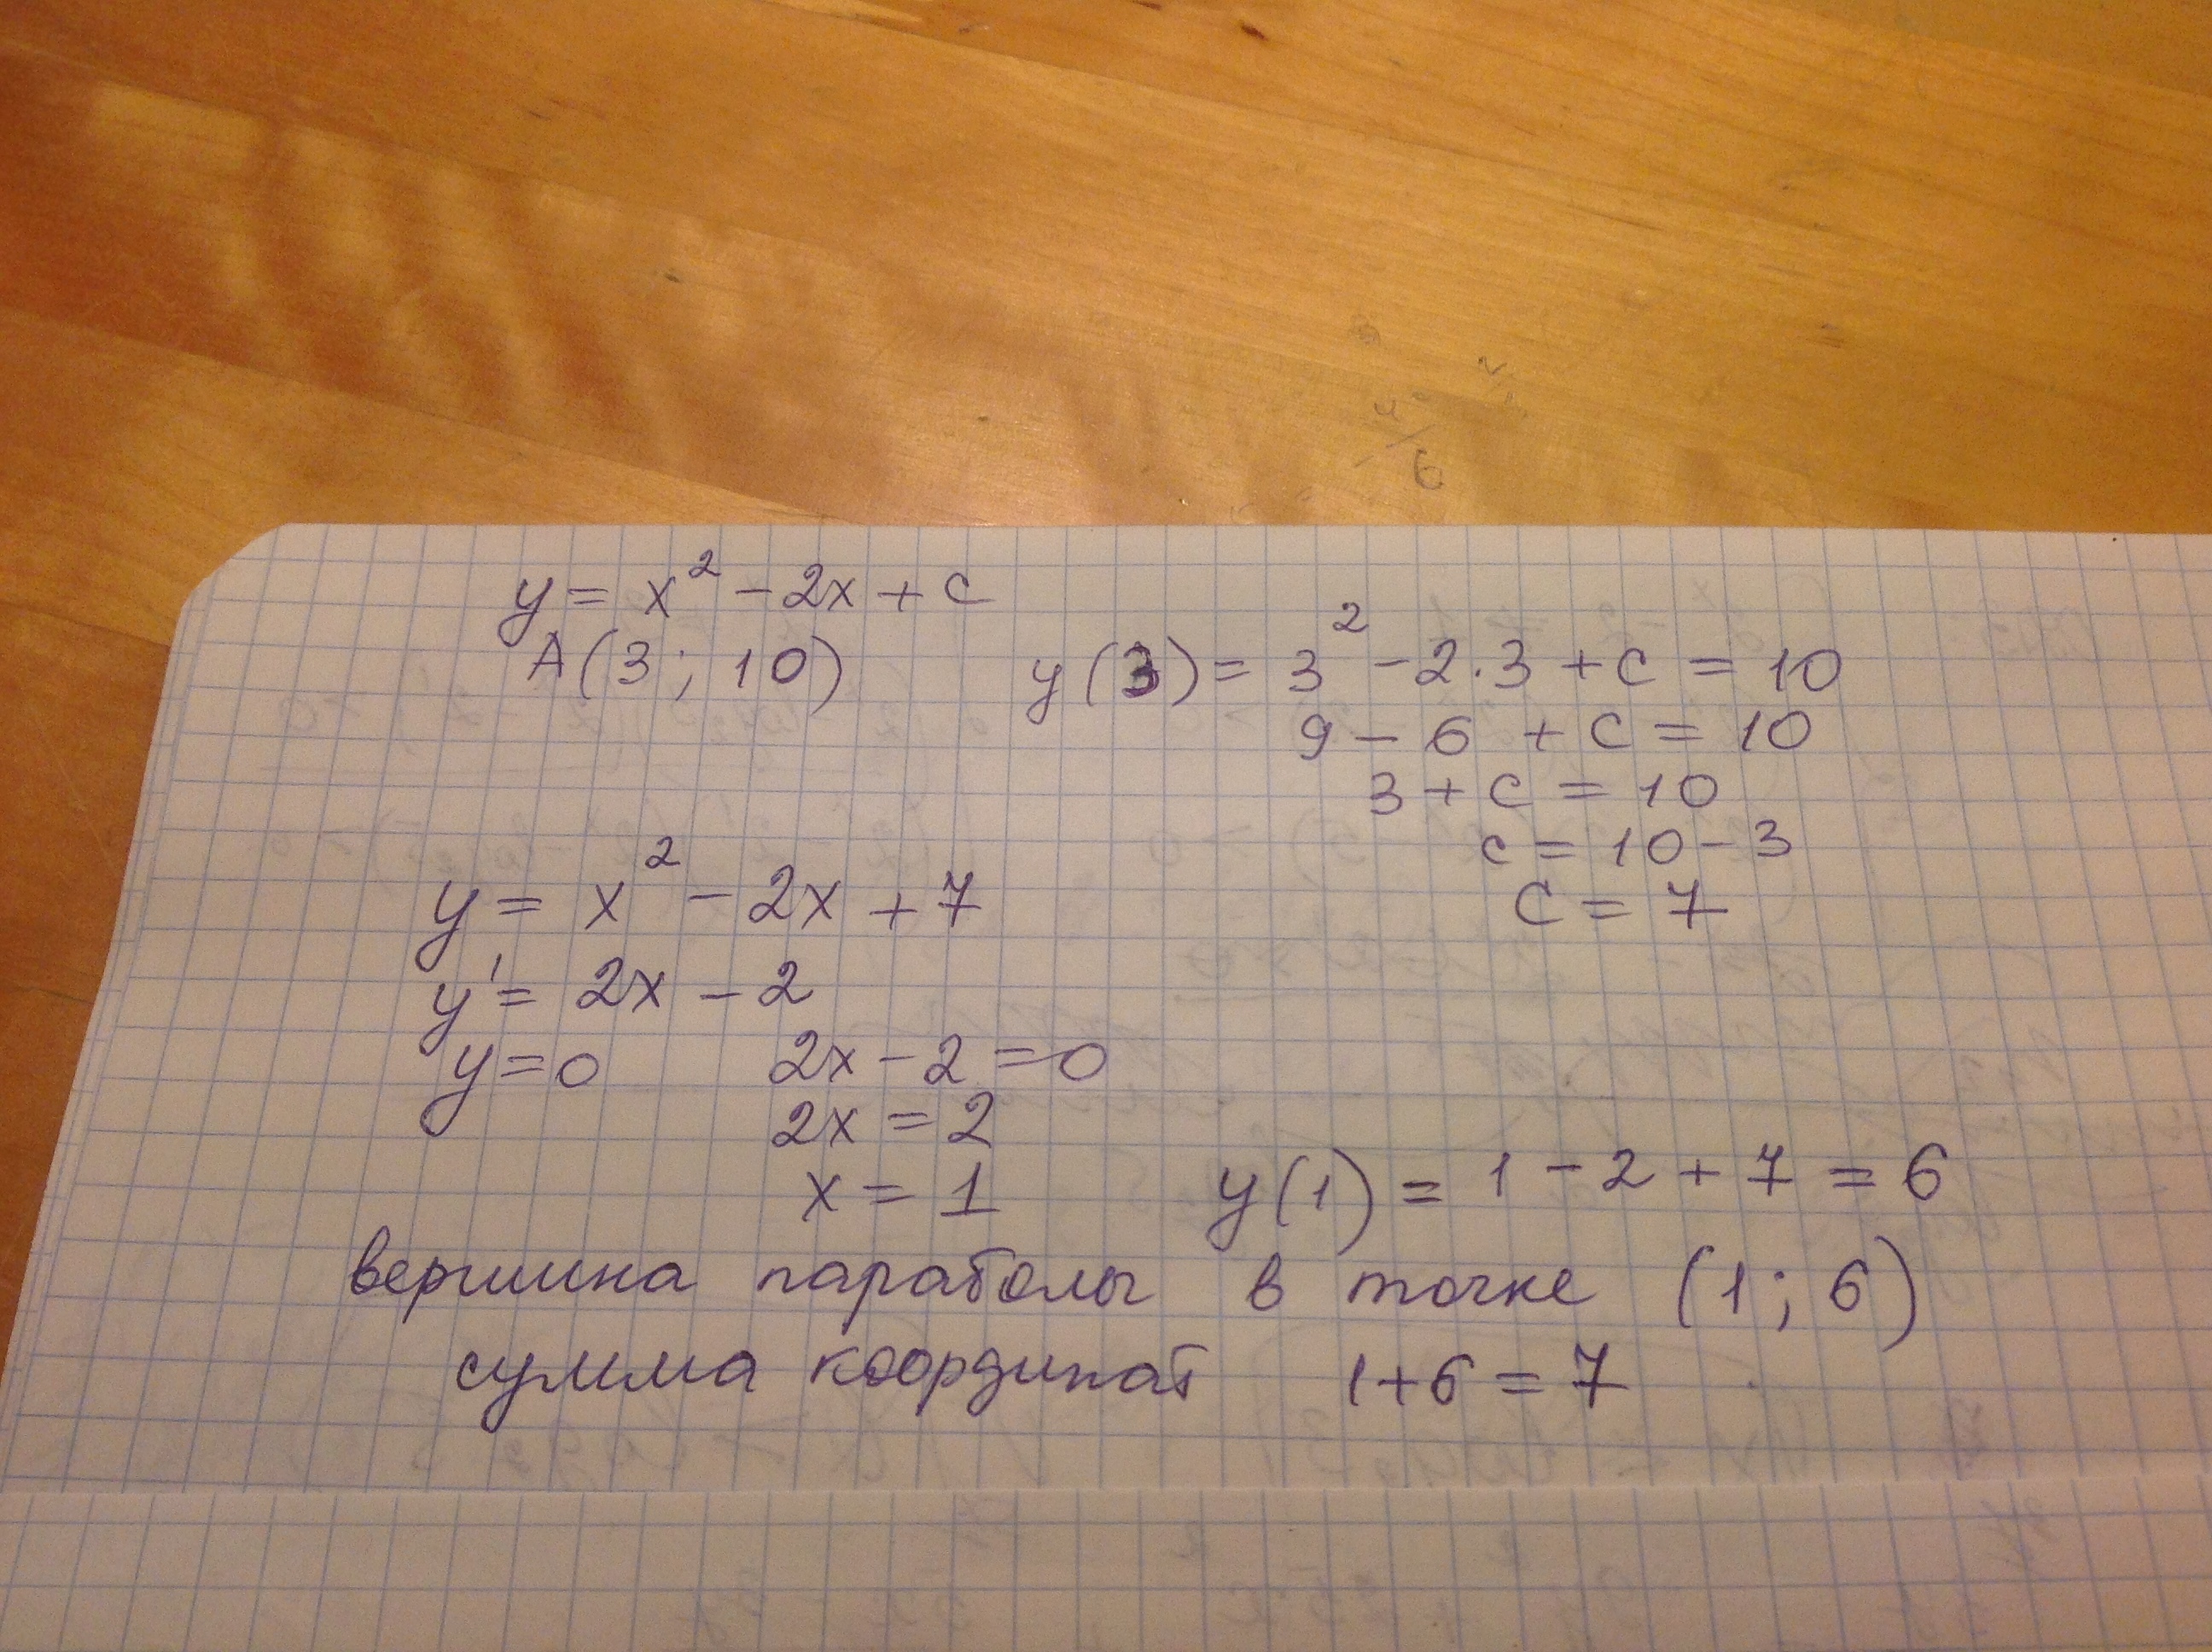 y = x² - 2x + c
A(3; 10)
y(3) = 3² - 2·3 + c = 10
9 - 6 + c = 10
3 + c = 10
c = 10 - 3
c = 7
y = x² - 2x + 7
y' = 2x - 2
y = 0 2x - 2 = 0
2x = 2
x = 1
y(1) = 1 - 2 + 7 = 6
вершина параболы в точке (1; 6)
сумма координат 1+6=7